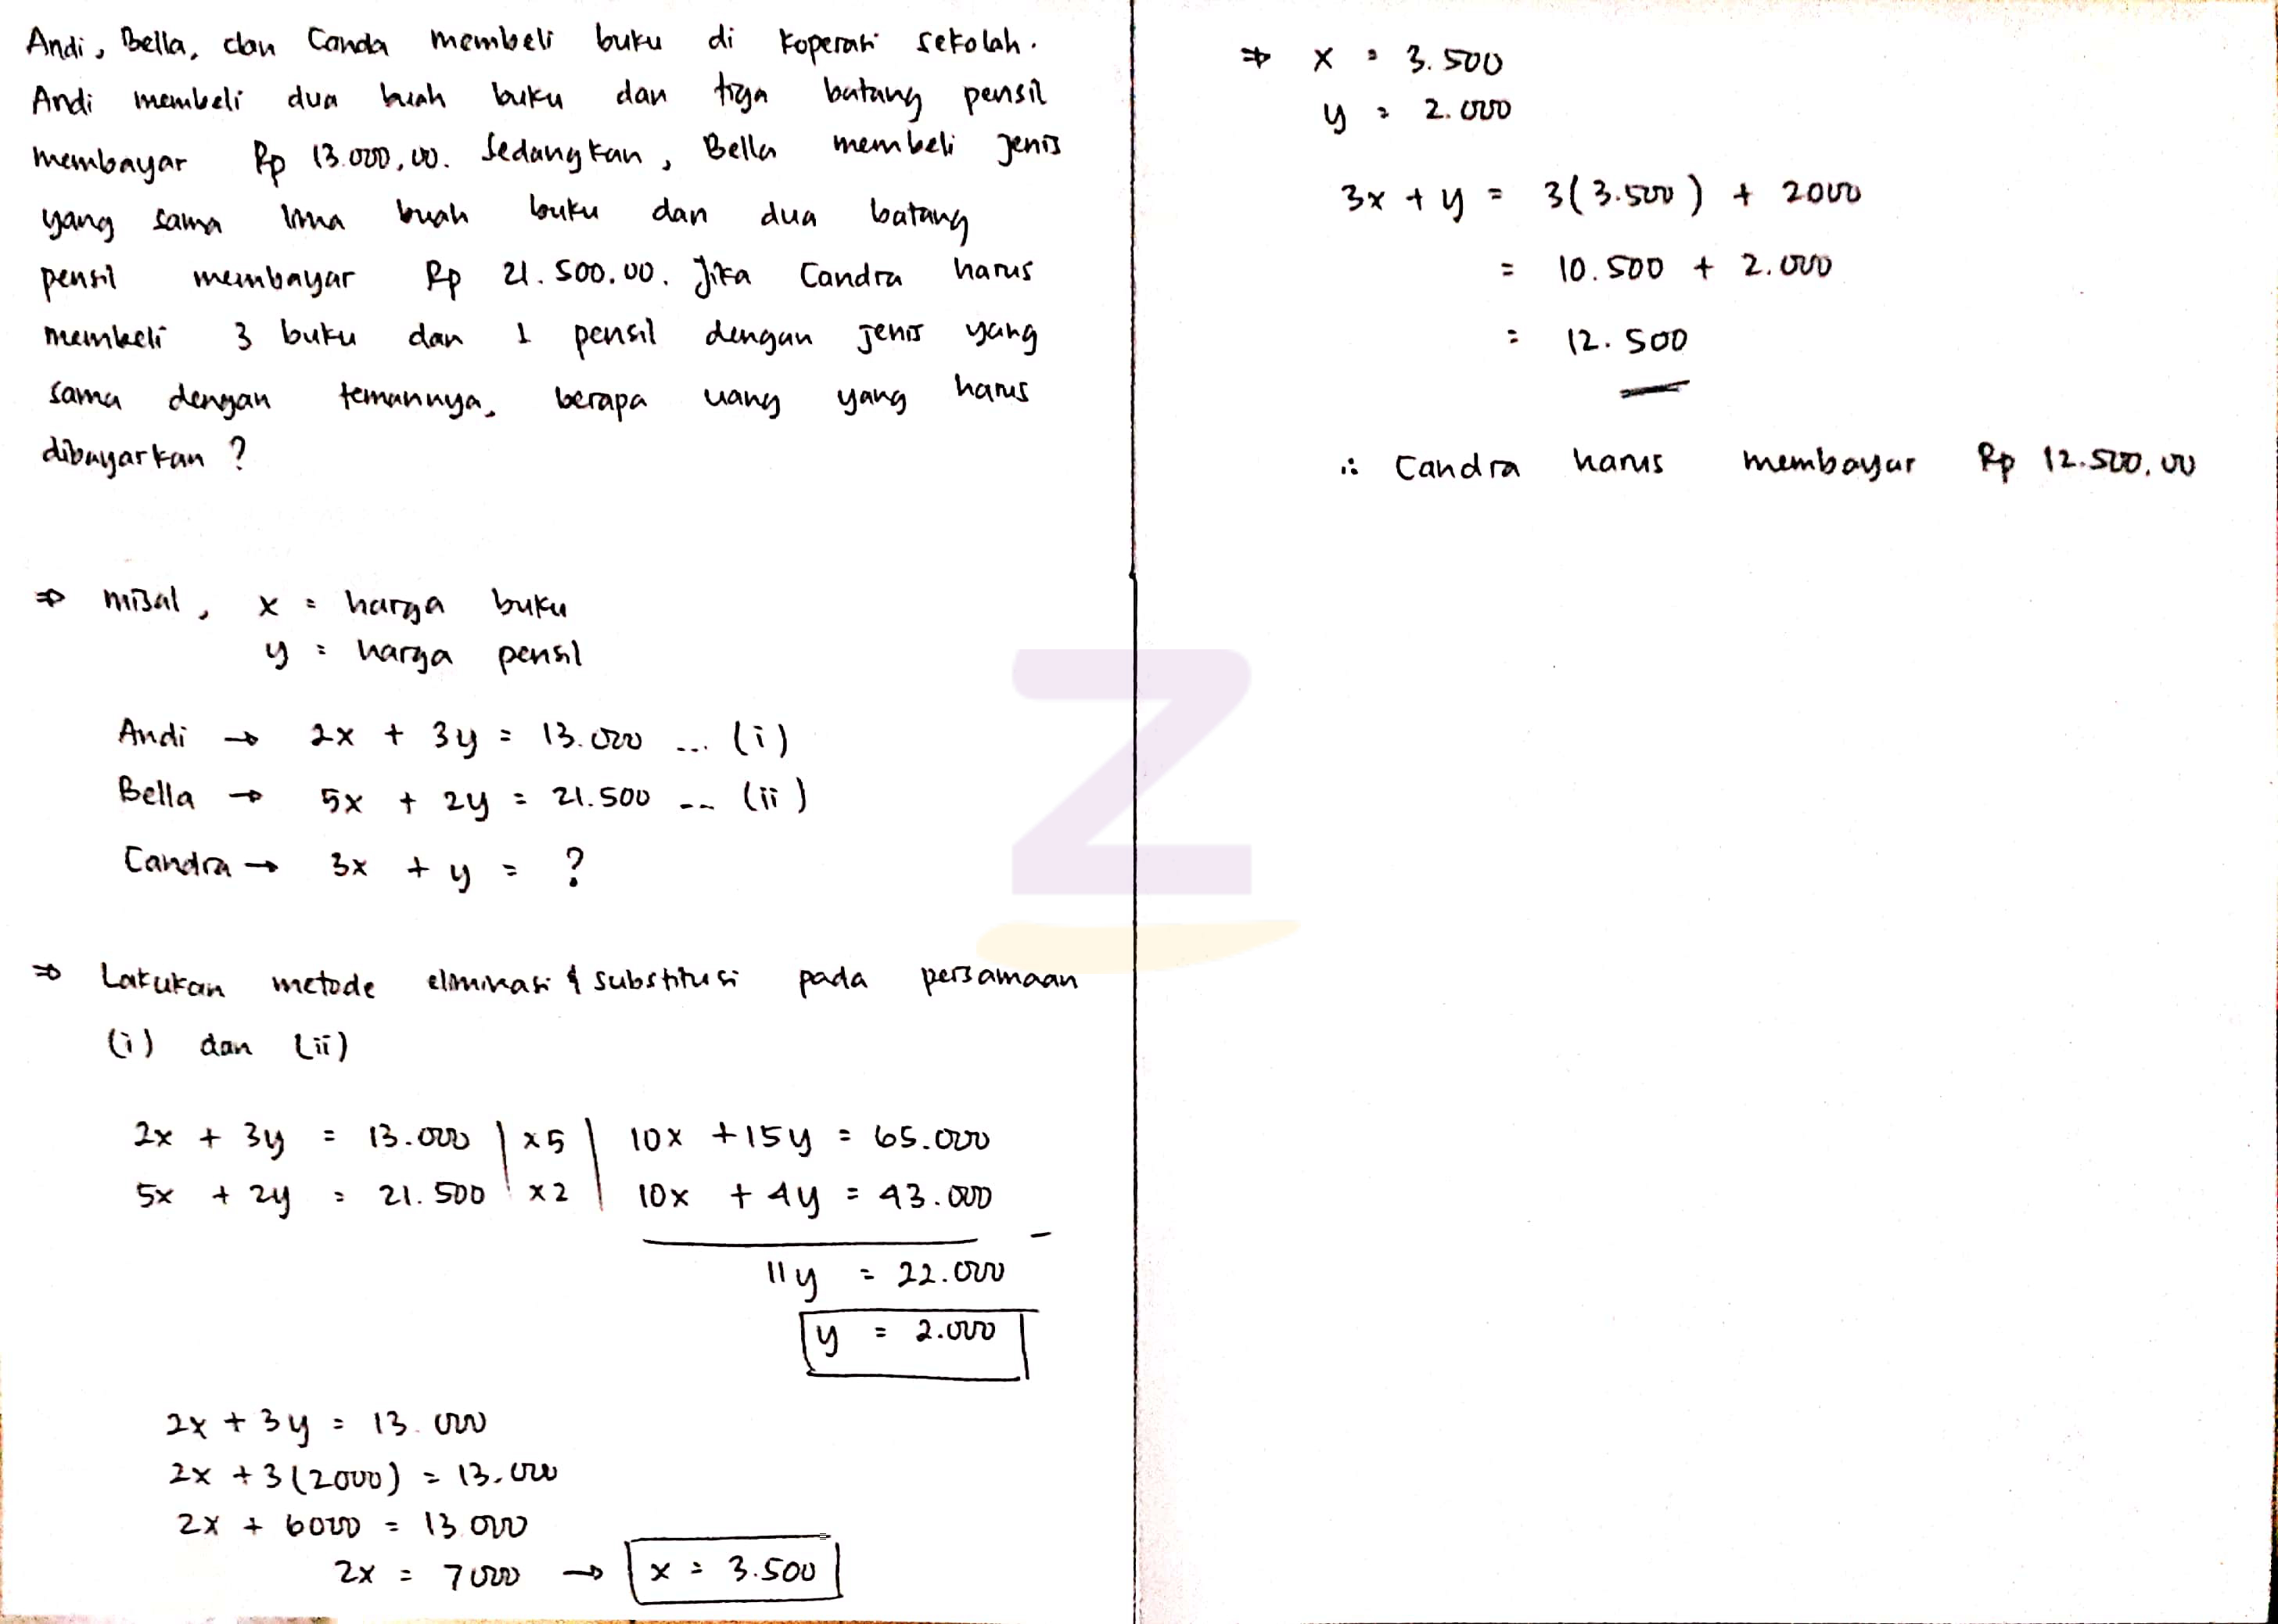 Andi, Bella, dan Canda membeli buku di koperasi sekolah.
Andi membeli dua buah buku dan tiga batang pensil
membayar Rp 13.000,00. Sedangkan, Bella membeli jenis
yang sama lima buah buku dan dua batang
pensil membayar Rp 21.500.00. Jika Candra harus
membeli 3 buku dan 1 pensil dengan jenis yang
sama dengan temannya, berapa uang yang harus
dibayarkan ?
⇒ misal, x = harga buku
y = harga pensil
Andi → 2x + 3y = 13.000 ... (i)
Bella → 5x + 2y = 21.500 ... (ii)
Candra → 3x + y = ?
⇒ Lakukan metode eliminasi & substitusi pada persamaan
(i) dan (ii)
2x + 3y = 13.000 | x5 | 10x + 15y = 65.000
5x + 2y = 21.500 | x2 | 10x + 4y = 43.000
–
11y = 22.000
y = 2.000
2x + 3y = 13.000
2x + 3(2000) = 13.000
2x + 6000 = 13.000
2x = 7000 → x = 3.500
⇒ x = 3.500
y = 2.000
3x + y = 3(3.500) + 2000
= 10.500 + 2.000
= 12.500
∴ Candra harus membayar Rp 12.500,00
Z